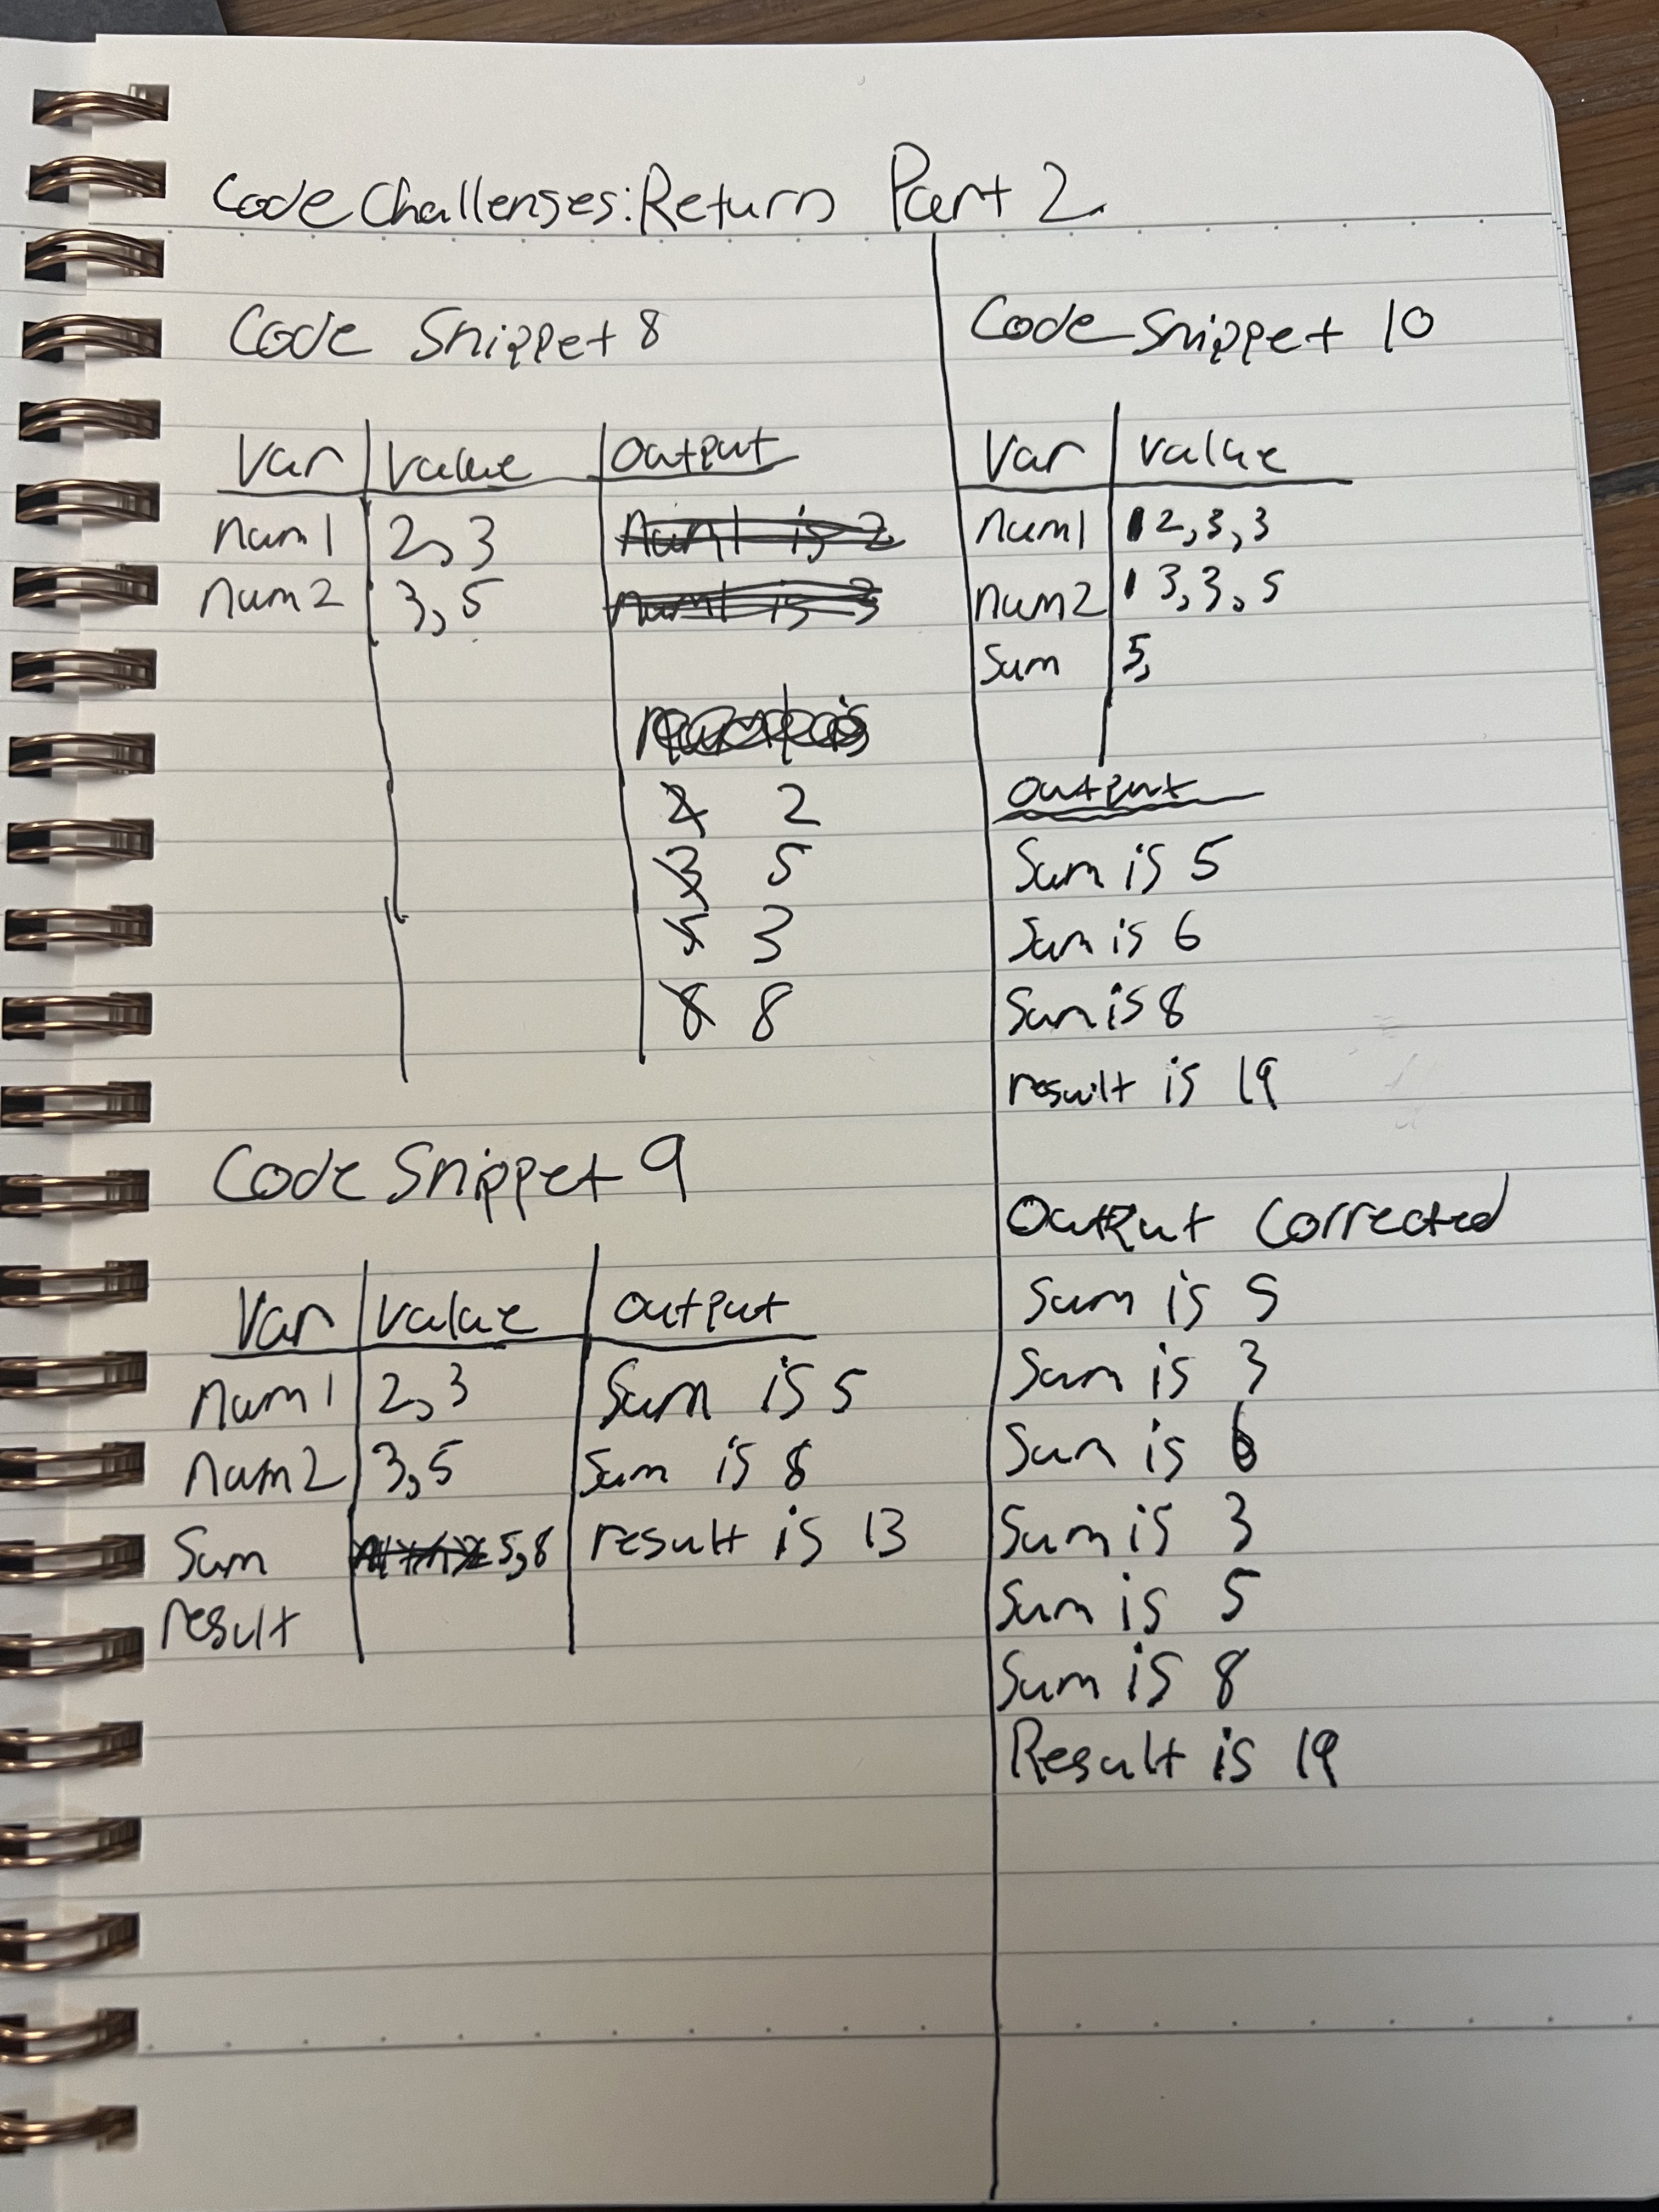 Code Challenges: Return Part 2.
Code Snippet 8
Var Value Output
num1 2, 3 num1 is 2
num2 3, 5 num1 is 3
2 2
3 5
5 3
8 8
Code Snippet 9
Var Value Output
num1 2, 3 Sum is 5
num2 3, 5 Sum is 8
Sum 5, 8 result is 13
result
Code Snippet 10
Var Value
num1 2, 3, 3
num2 3, 3, 5
Sum 5,
Output
Sum is 5
Sum is 6
Sum is 8
result is 19
Output Corrected
Sum is 5
Sum is 3
Sum is 6
Sum is 3
Sum is 5
Sum is 8
Result is 19